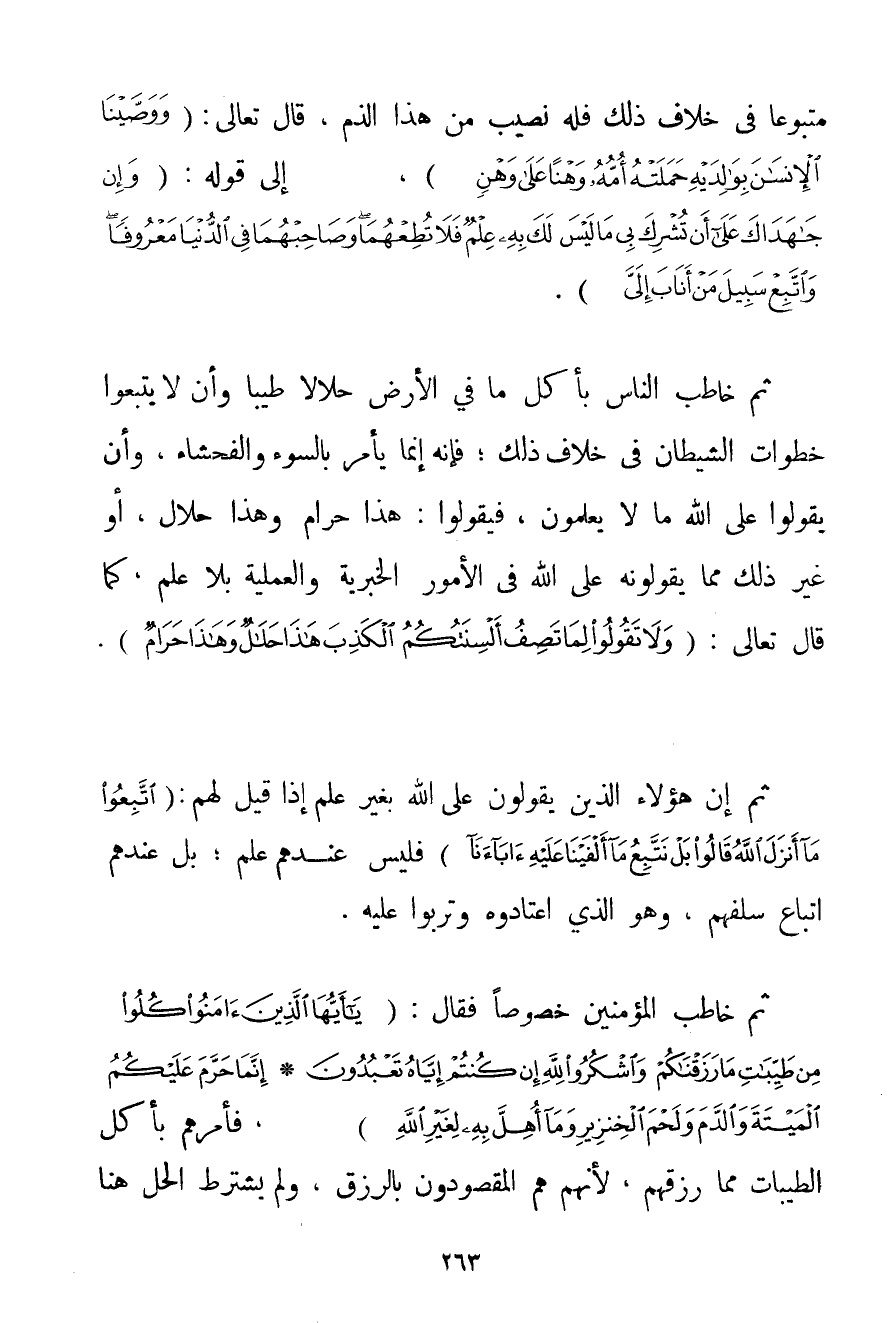 متبوعا فى خلاف ذلك فله نصيب من هذا الذم ، قال تعالى : ( وَوَصَّيْنَا
ٱلْإِنسَٰنَ بِوَٰلِدَيْهِ حَمَلَتْهُ أُمُّهُۥ وَهْنًا عَلَىٰ وَهْنٍ ) ، إلى قوله : ( وَإِن
جَٰهَدَاكَ عَلَىٰٓ أَن تُشْرِكَ بِى مَا لَيْسَ لَكَ بِهِۦ عِلْمٌ فَلَا تُطِعْهُمَا ۖ وَصَاحِبْهُمَا فِى ٱلدُّنْيَا مَعْرُوفًا ۖ
وَٱتَّبِعْ سَبِيلَ مَنْ أَنَابَ إِلَىَّ ) .
ثم خاطب الناس بأكل ما في الأرض حلالا طيبا وأن لا يتبعوا
خطوات الشيطان فى خلاف ذلك ؛ فإنه إنما يأمر بالسوء والفحشاء ، وأن
يقولوا على الله ما لا يعلمون ، فيقولوا : هذا حرام وهذا حلال ، أو
غير ذلك مما يقولونه على الله فى الأمور الخبرية والعملية بلا علم ، كما
قال تعالى : ( وَلَا تَقُولُوا۟ لِمَا تَصِفُ أَلْسِنَتُكُمُ ٱلْكَذِبَ هَٰذَا حَلَٰلٌ وَهَٰذَا حَرَامٌ ) .
ثم إن هؤلاء الذين يقولون على الله بغير علم إذا قيل لهم : ( ٱتَّبِعُوا۟
مَآ أَنزَلَ ٱللَّهُ قَالُوا۟ بَلْ نَتَّبِعُ مَآ أَلْفَيْنَا عَلَيْهِ ءَابَآءَنَآ ) فليس عندهم علم ؛ بل عندهم
اتباع سلفهم ، وهو الذي اعتادوه وتربوا عليه .
ثم خاطب المؤمنين خصوصاً فقال : ( يَٰٓأَيُّهَا ٱلَّذِينَ ءَامَنُوا۟ كُلُوا۟
مِن طَيِّبَٰتِ مَا رَزَقْنَٰكُمْ وَٱشْكُرُوا۟ لِلَّهِ إِن كُنتُمْ إِيَّاهُ تَعْبُدُونَ * إِنَّمَا حَرَّمَ عَلَيْكُمُ
ٱلْمَيْتَةَ وَٱلدَّمَ وَلَحْمَ ٱلْخِنزِيرِ وَمَآ أُهِلَّ بِهِۦ لِغَيْرِ ٱللَّهِ ) ، فأمرهم بأكل
الطيبات مما رزقهم ، لأنهم هم المقصودون بالرزق ، ولم يشترط الحل هنا
٢٦٣